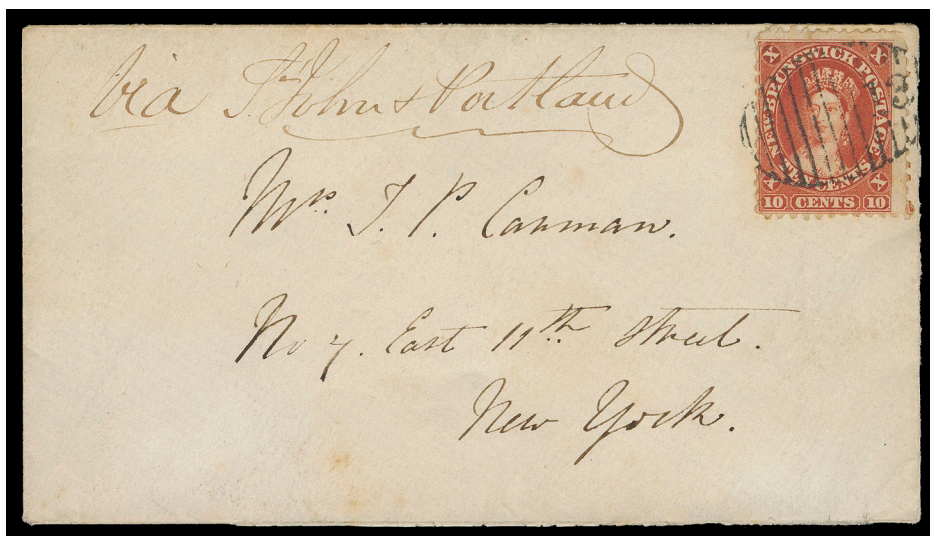 via St. John & Portland
X X
NEW BRUNSWICK POSTAGE
TEN CENTS
X X
10 CENTS 10
Mrs. J. P. Canman.
No 7. East 11th Street.
New York.